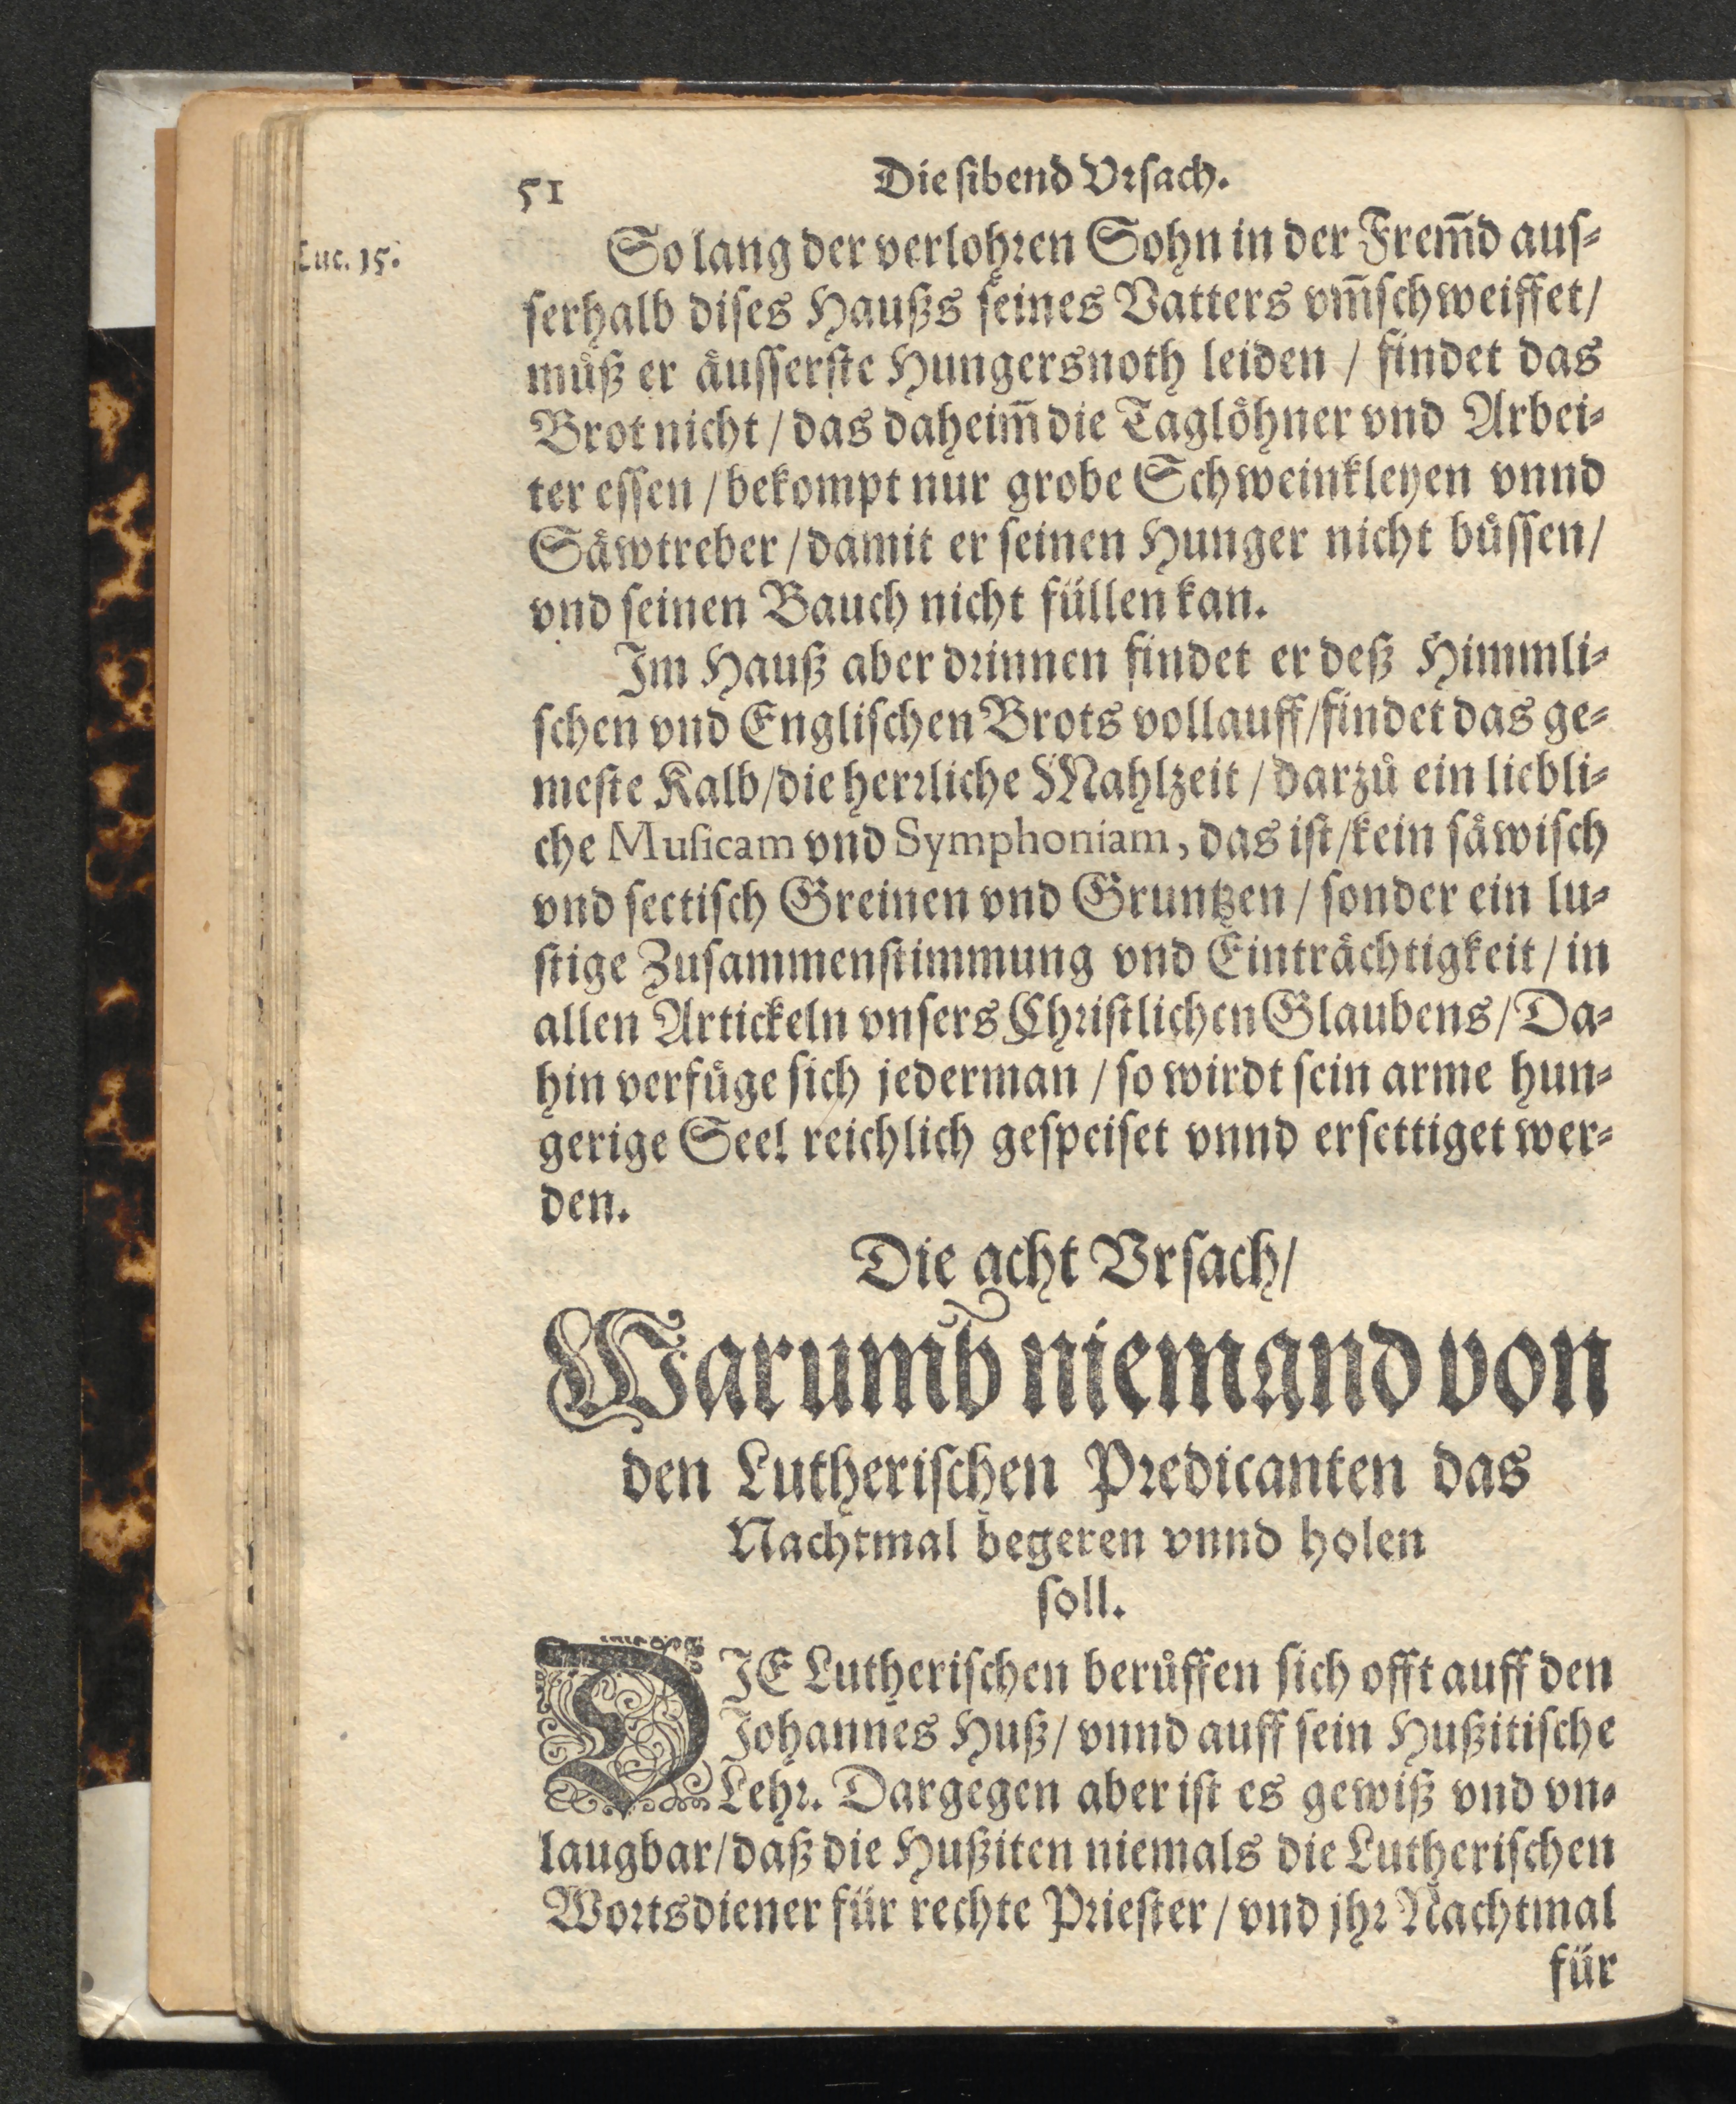 51 Die ſibend Vrſach.
Luc. 15.
So lang der verlohꝛen Sohn in der Frem̃d auſ-
ſerhalb diſes Haußs ſeines Vatters vm̃ſchweiffet/
můß er aͤuſſerſte Hungersnoth leiden / findet das
Brot nicht / das daheim̃ die Tagloͤhner vnd Arbei-
ter eſſen / bekompt nur grobe Schweinkleyen vnnd
Saͤwtreber / damit er ſeinen Hunger nicht buͤſſen/
vnd ſeinen Bauch nicht füllen kan.
Im Hauß aber dꝛinnen findet er deß Himmli-
ſchen vnd Engliſchen Brots vollauff/findet das ge-
meſte Kalb/die herꝛliche Mahlzeit / darzů ein liebli-
che Muſicam vnd Symphoniam, das iſt/kein ſaͤwiſch
vnd ſectiſch Greinen vnd Gruntzen / ſonder ein lu-
ſtige Zuſammenſtimmung vnd Eintraͤchtigkeit / in
allen Artickeln vnſers Chꝛiſtlichen Glaubens/ Da-
hin verfuͤge ſich jederman / ſo wirdt ſein arme hun-
gerige Seel reichlich geſpeiſet vnnd erſettiget wer-
den.
Die acht Vrſach/
Warumb niemand von
den Lutheriſchen Pꝛedicanten das
Nachtmal begeren vnnd holen
ſoll.
DIE Lutheriſchen berůffen ſich offt auff den
Johannes Huß/ vnnd auff ſein Hußitiſche
Lehꝛ. Dargegen aber iſt es gewiß vnd vn-
laugbar/daß die Hußiten niemals die Lutheriſchen
Woꝛtsdiener für rechte Pꝛieſter / vnd jhꝛ Nachtmal
für